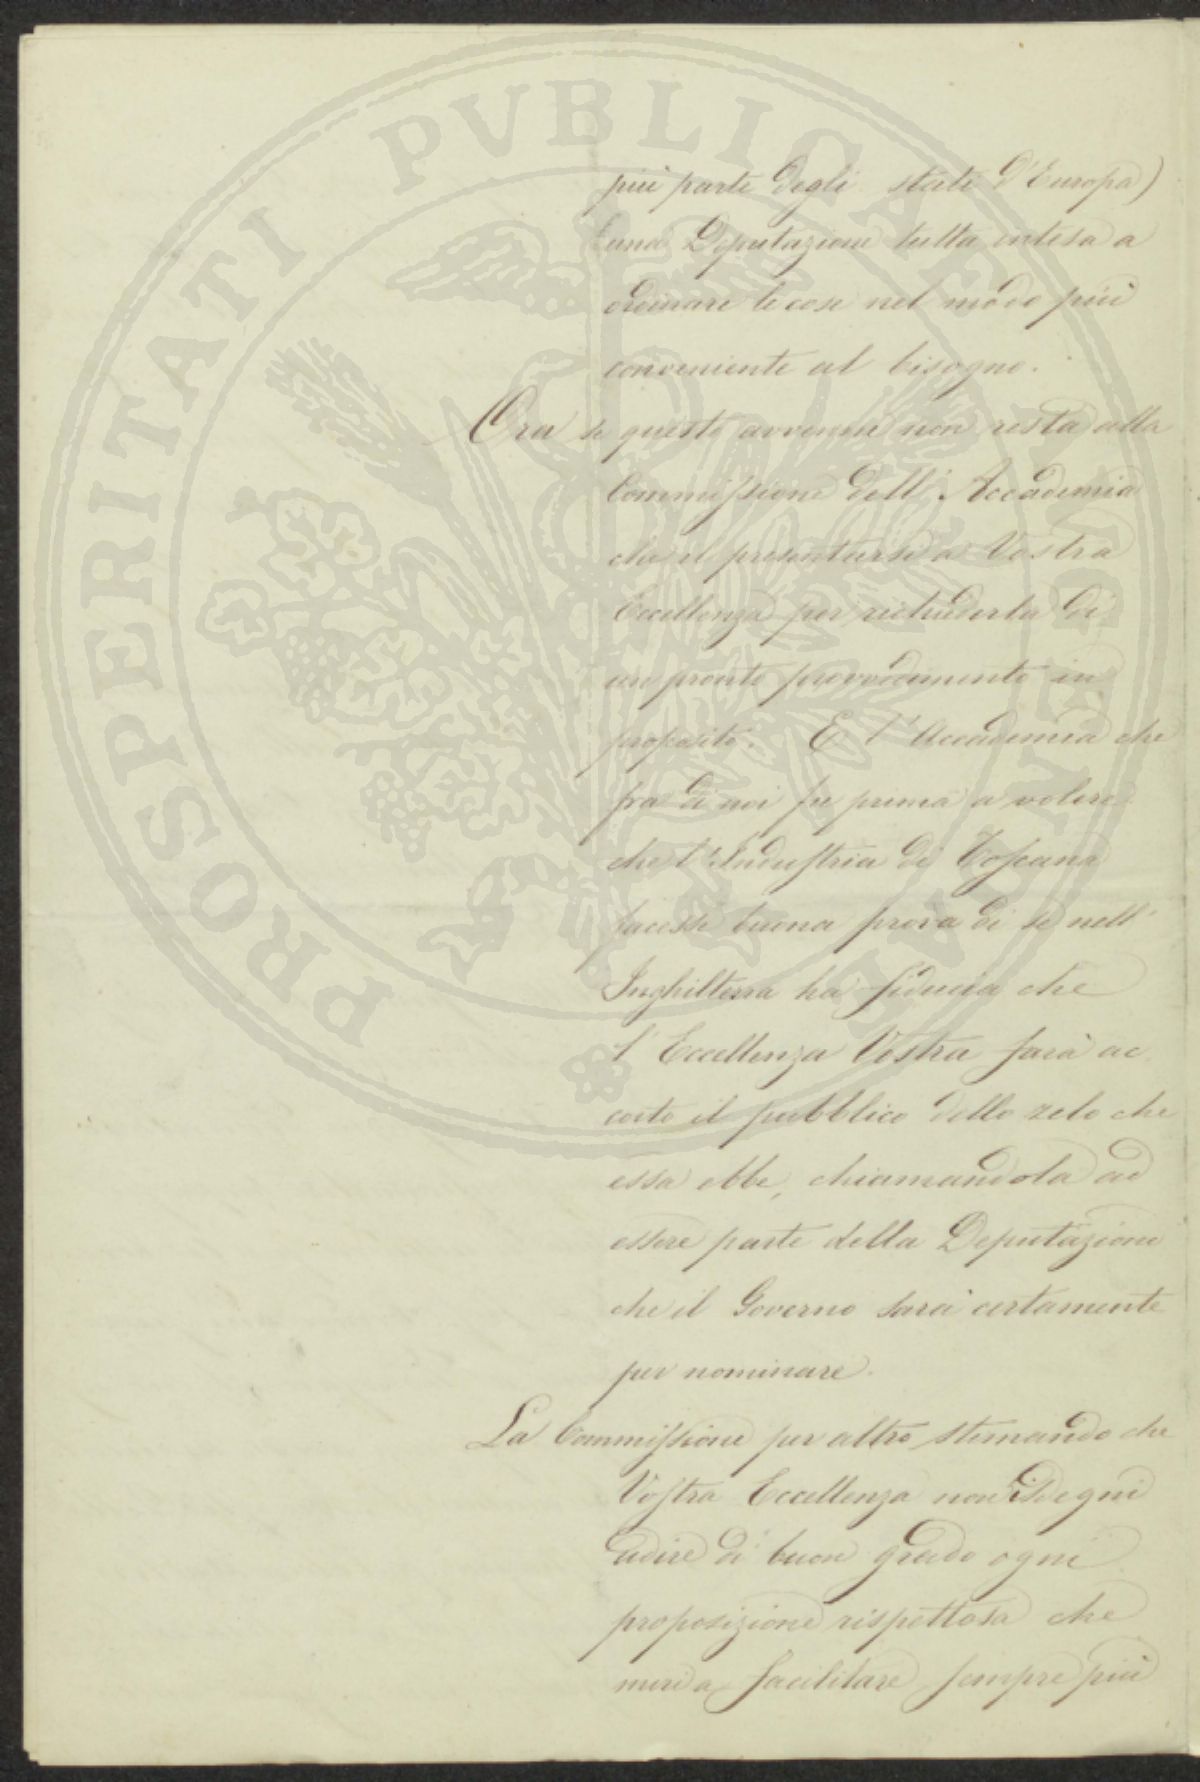 PROSPERITATI PVBLICAE AVGENDAE
più parte degli stati d'Europa)
una Deputazione tutta intesa a
ordinare le cose nel modo più
conveniente al bisogno.
Ora se questo avvenne non resta alla
Commissione dell'Accademia
che il presentarsi a Vostra
Eccellenza per richiederla di
un pronto provvedimento in
proposito. E l'Accademia che
fra di noi fu prima a volere
che l'Industria di Toscana
facesse buona prova di sè nell'
Inghilterra ha fiducia che
l'Eccellenza Vostra farà ac
corto il pubblico dello zelo che
essa ebbe, chiamandola ad
essere parte della Deputazione
che il Governo sarà certamente
per nominare.
La Commissione per altro stimando che
Vostra Eccellenza non isdegni
udire di buon grado ogni
proposizione rispettosa che
miri a facilitare sempre più